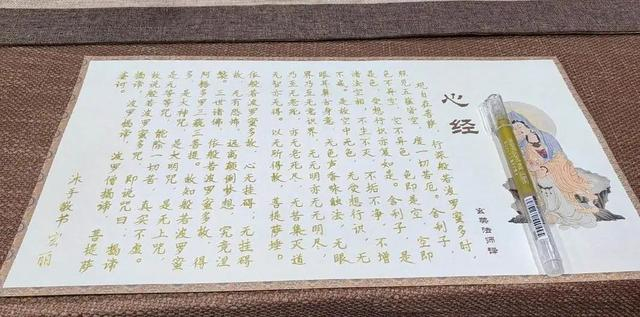 心经
玄奘法师译
观自在菩萨，行深般若波罗蜜多时，
照见五蕴皆空，度一切苦厄。舍利子，
色不异空，空不异色，色即是空，空即
是色，受想行识亦复如是。舍利子，是
诸法空相，不生不灭，不垢不净，不增
不减。是故空中无色，无受想行识，无
眼耳鼻舌身意，无色声香味触法，无眼
界乃至无意识界，无无明亦无无明尽，
乃至无老死，亦无老死尽，无苦集灭道
无智亦无得。以无所得故，菩提萨埵。
依般若波罗蜜多故，心无挂碍；无挂碍
故，无有恐怖，远离颠倒梦想，究竟涅
槃。三世诸佛，依般若波罗蜜多故，得
阿耨多罗三藐三菩提。故知般若波罗蜜
多，是大神咒，是大明咒，是无上咒，
是无等等咒，能除一切苦，真实不虚。
故说般若波罗蜜多咒，即说咒曰：揭谛
揭谛，波罗揭谛，波罗僧揭谛，菩提萨
婆诃。
沐手敬书 宏丽